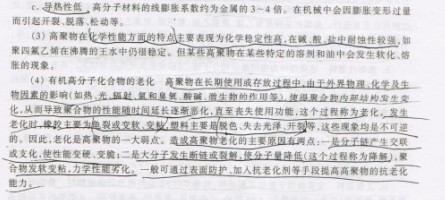 c. 导热性低 高分子材料的线膨胀系数约为金属的3~4倍。在机械中会因膨胀变形过量
而引起开裂、脱落、松动等。
(3) 高聚物在化学性能方面的特点主要表现为化学稳定性高,在碱、酸、盐中耐蚀性较强,如
聚四氟乙烯在沸腾的王水中仍很稳定。但某些高聚物在某些特定的溶剂和油中会发生软化、熔
胀的现象。
(4) 有机高分子化合物的老化 高聚物在长期使用或存放过程中,由于外界物理、化学及生
物因素的影响(如热、光、辐射、氧和臭氧、酸碱、微生物的作用等),使得聚合物内部结构发生变
化,从而导致聚合物的性能随时间延长逐渐恶化,直至丧失使用功能,这个过程称为老化。发生
老化时,橡胶主要为龟裂或变软、变粘,塑料主要是脱色、失去光泽、开裂等,这些现象均是不可逆
的。因此,老化是高聚物的一大弱点。造成高聚物老化的主要原因有两点:一是分子链产生交联
或支化,使性能变硬、变脆;二是大分子发生断链或裂解,使分子量降低(这个过程称为降解),聚
合物发软变粘,力学性能劣化。一般可通过表面防护、加入抗老化剂等手段提高高聚物的抗老化
能力。